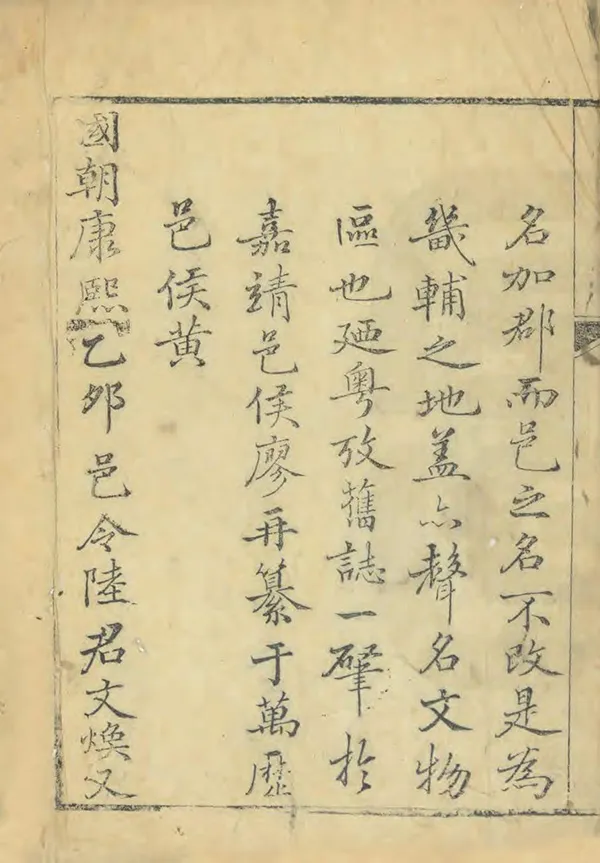 名加郡而邑之名不改是為
畿輔之地蓋亦聲名文物
區也廼粵攷舊誌一肇於
嘉靖邑侯廖再纂于萬歷
邑侯黄
國朝康熙乙夘邑令陸君文煥又